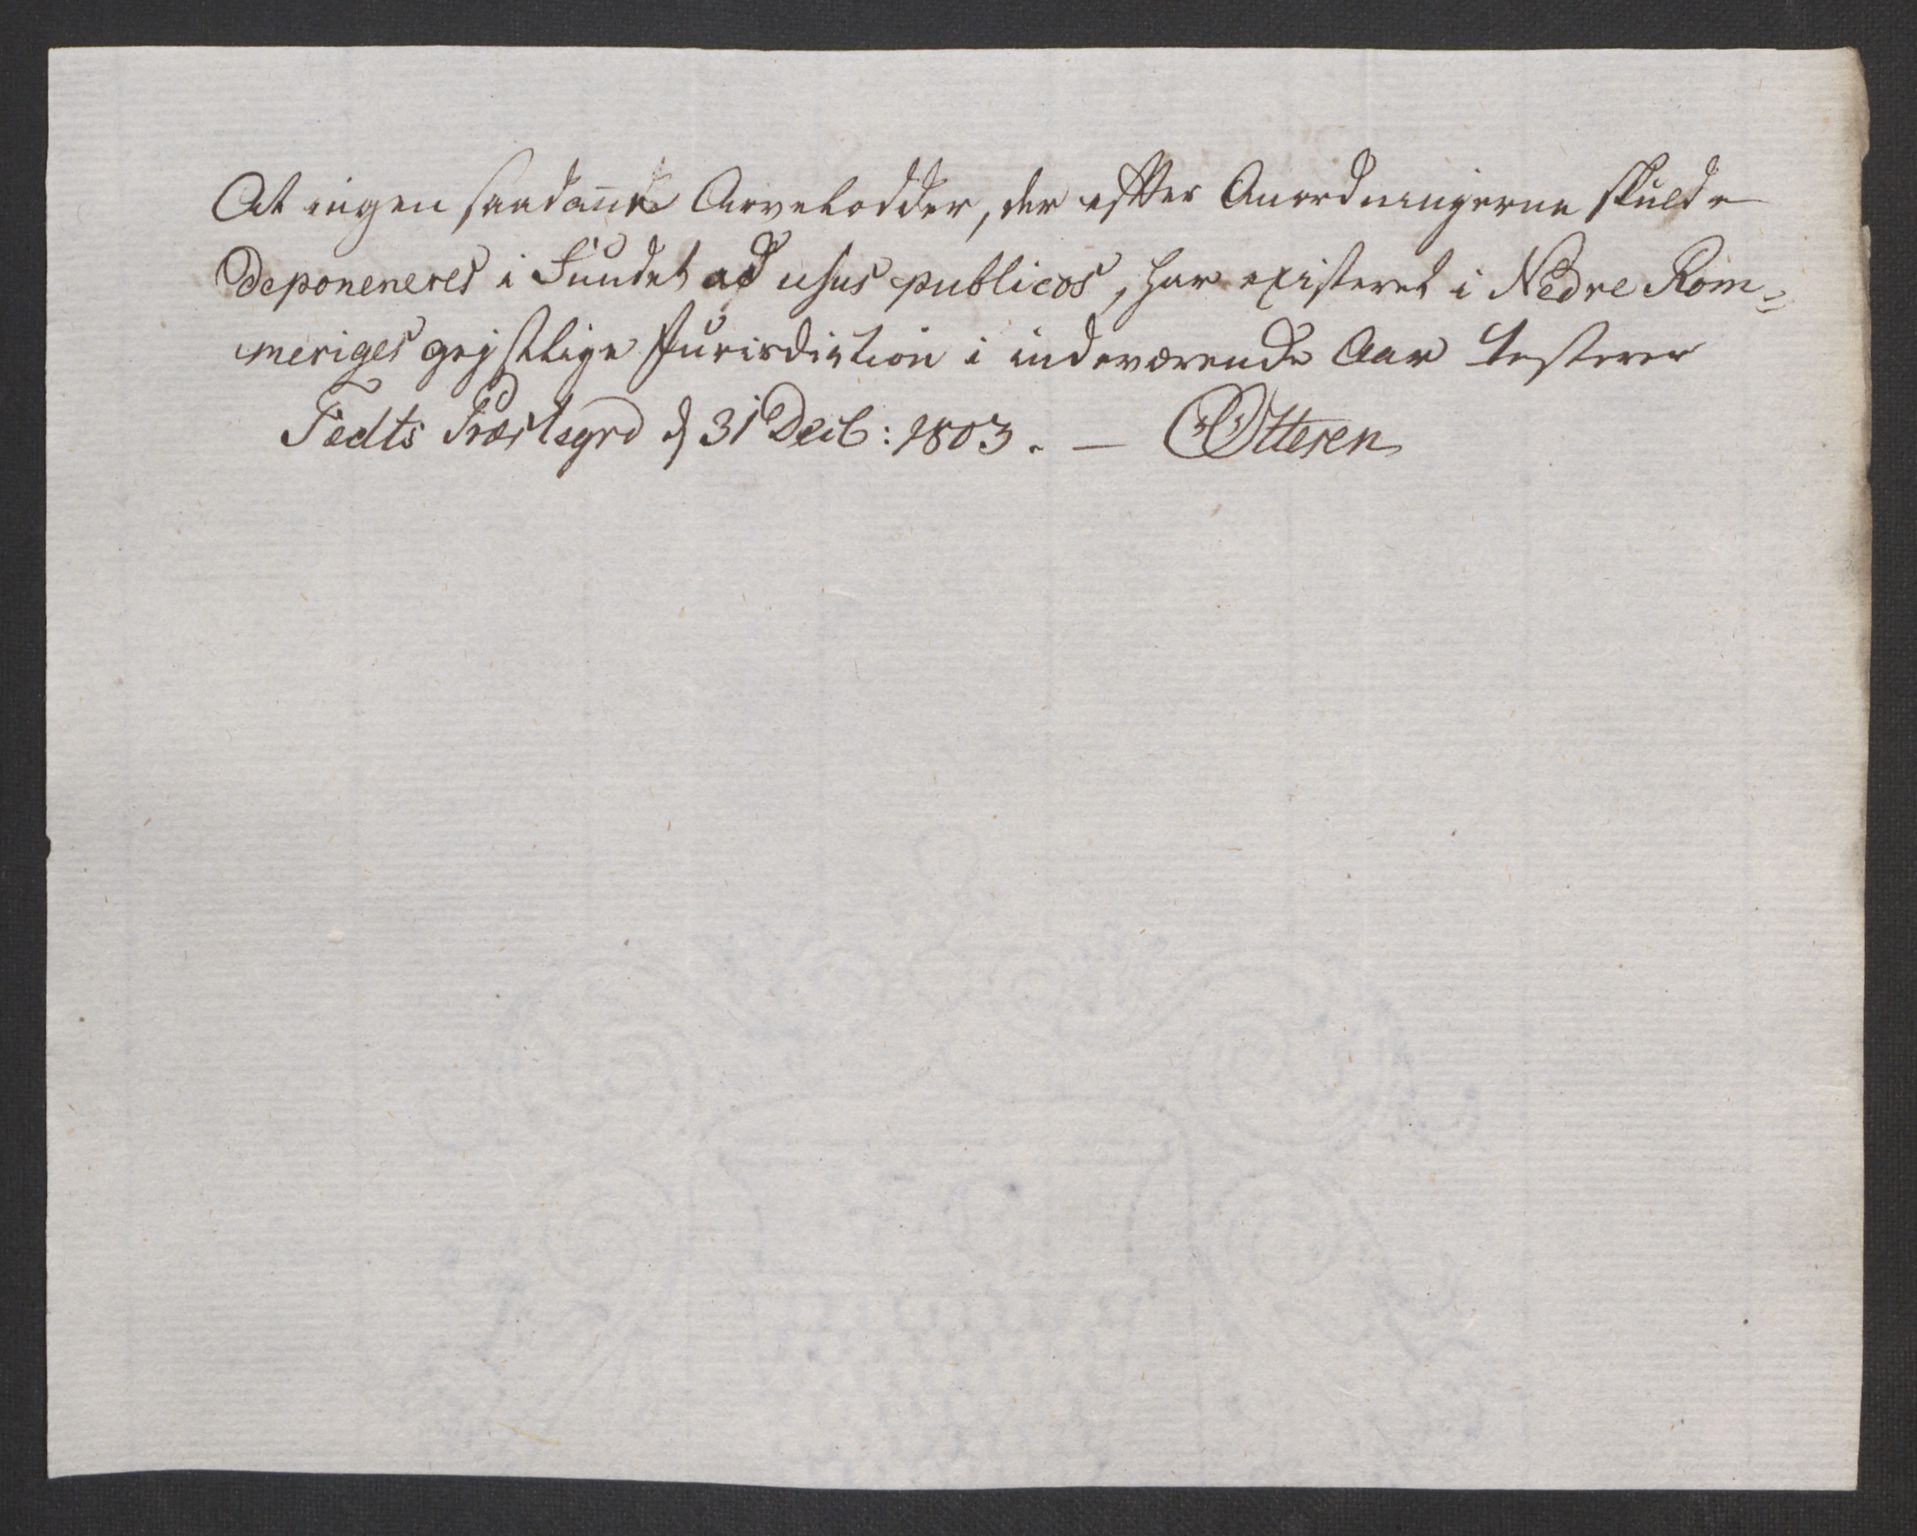 At ingen saadanne Arvelodder, der efter Anordningerne skulde
deponeneres i Fundet ad usus publicos, har existeret i Nedre Rom=
meriges geistlige Jurisdiction i indeværende Aar testerer
Fedts Præstegrd d 31 Decb: 1803. — Ottesen